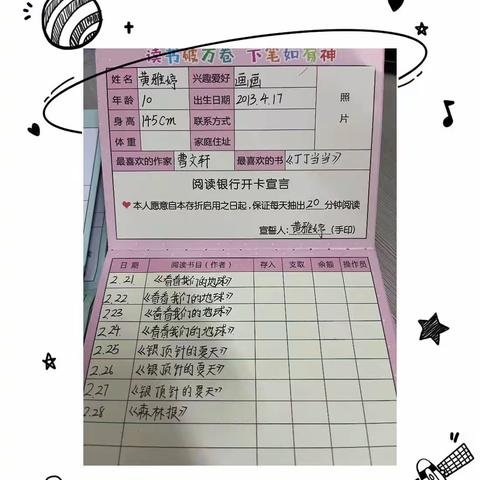 读书破万卷 下笔如有神
姓名 黄雅婷 兴趣爱好 画画
年龄 10 出生日期 2013.4.17
身高 145cm 联系方式
体重 家庭住址
照片
最喜欢的作家 曹文轩 最喜欢的书 《丁丁当当》
阅读银行开卡宣言
本人愿意自本存折启用之日起,保证每天抽出20分钟阅读
宣誓人:黄雅婷(手印)
日期 阅读书目(作者) 存入 支取 余额 操作员
2.21 《看看我们的地球》
2.22 《看看我们的地球》
2.23 《看看我们的地球》
2.24 《看看我们的地球》
2.25 《银顶针的夏天》
2.26 《银顶针的夏天》
2.27 《银顶针的夏天》
2.28 《森林报》